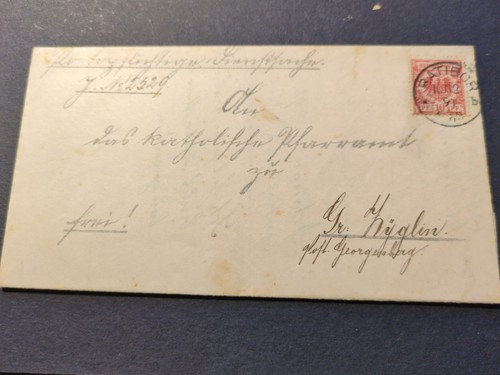 Portopflichtige Dienstsache.
J. No 2529
An
das katholische Pfarramt
zu
frei!
Gr: Zyglin.
Post. Georgenberg.
RATIBOR